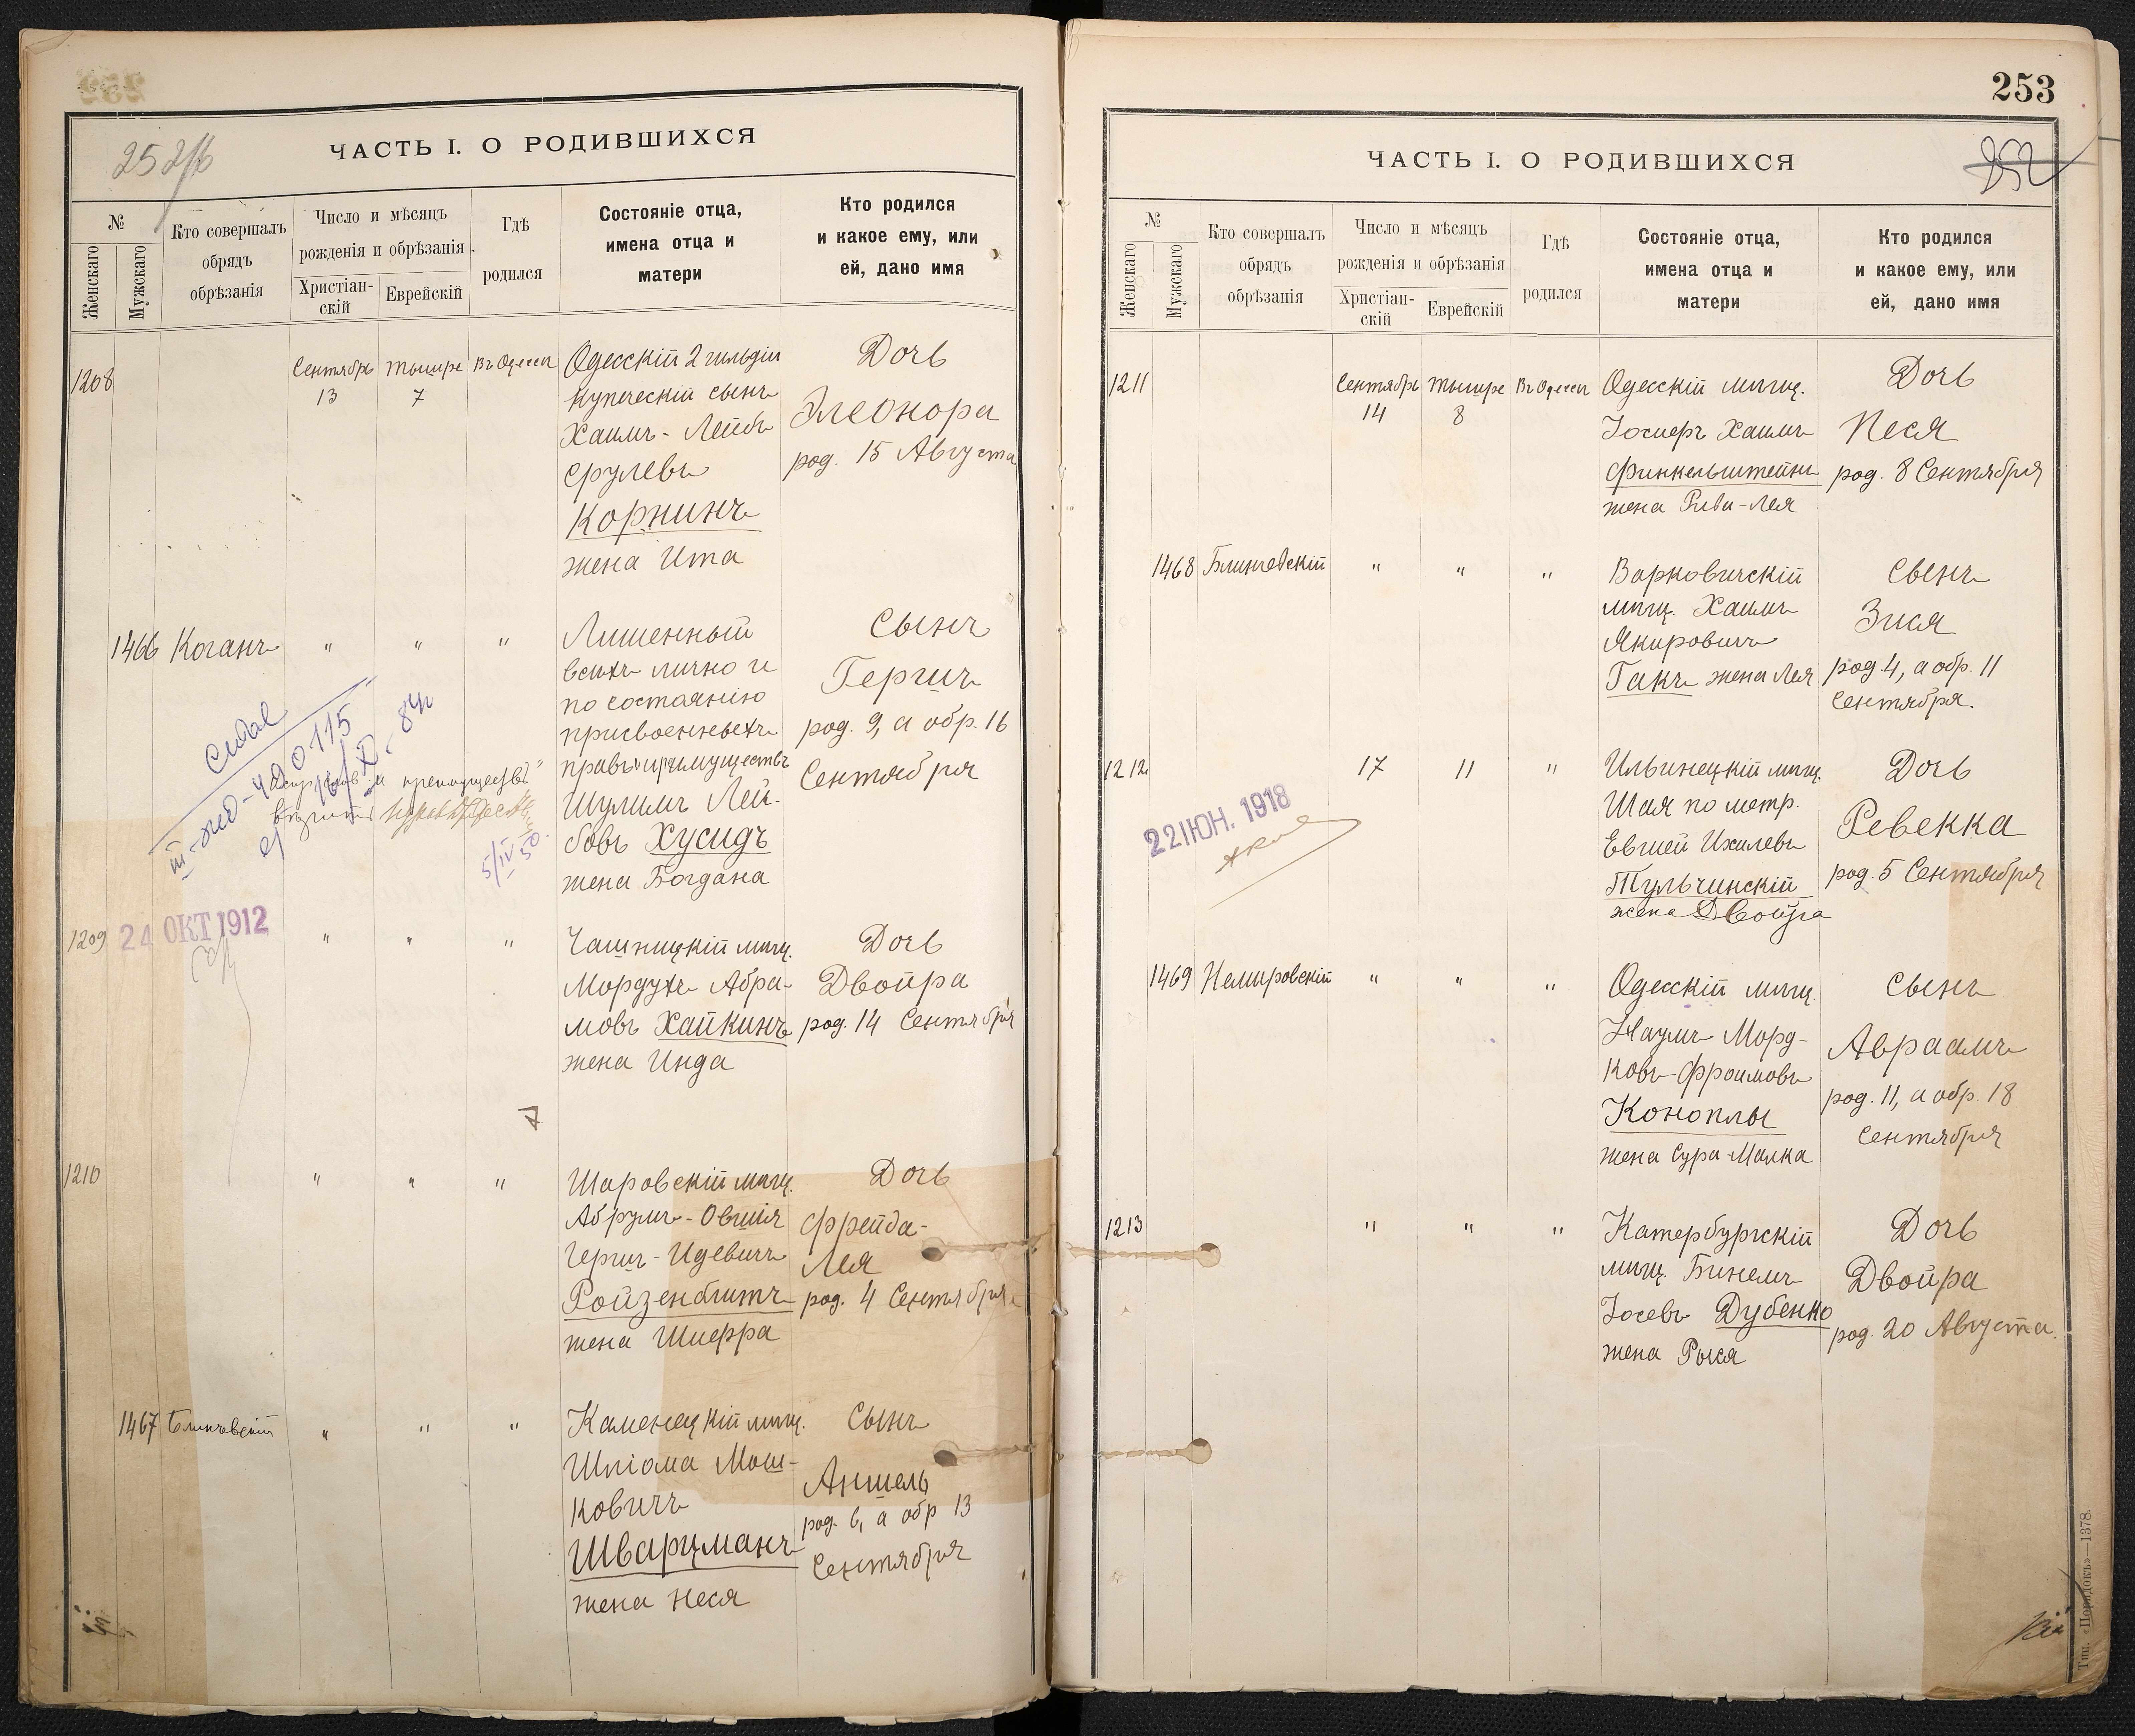 252/б
ЧАСТЬ I. О РОДИВШИХСЯ
№
Женскаго
Мужскаго
Кто совершалъ
обрядъ
обрѣзанія
Число и мѣсяцъ
рожденія и обрѣзанія
Христіан-
скій
Еврейскій
Гдѣ
родился
Состояніе отца,
имена отца и
матери
Кто родился
и какое ему, или
ей, дано имя
1208
Сентябрь
13
Тишре
7
Въ Одессѣ
Одесскій 2 гильдіи
купеческій сынъ
Хаимъ-Лейбъ
Срулевъ
Корнинъ
жена Ита
Дочь
Элеонора
род. 15 Августа
1466
Коганъ
"
"
"
Лишенный
всѣхъ лично и
по состоянію
присвоенныхъ
правъ и приимуществъ
Шулимъ Лей-
бовъ Хусидъ
жена Богдана
Сынъ
Гершъ
род. 9, а обр. 16
Сентября
преимуществъ"
5/IV 50.
1209
24 ОКТ 1912
"
"
"
Чашницкій мѣщ.
Мордухъ Абра-
мовъ Хайкинъ
жена Инда
Дочь
Двойра
род. 14 Сентября
7
1210
"
"
"
Шаровскій мѣщ.
Абрумъ-Овшія
Гершъ-Идевичъ
Ройзенблитъ
жена Шифра
Дочь
Фрейда-
Лея
род. 4 Сентября
1467
Блинчевскій
"
"
"
Каменецкій мѣщ.
Шліома Мош-
ковичъ
Шварцманъ
жена Неся
Сынъ
Аншель
род. 6, а обр 13
Сентября
253
252
ЧАСТЬ I. О РОДИВШИХСЯ
№
Женскаго
Мужскаго
Кто совершалъ
обрядъ
обрѣзанія
Число и мѣсяцъ
рожденія и обрѣзанія
Христіан-
скій
Еврейскій
Гдѣ
родился
Состояніе отца,
имена отца и
матери
Кто родился
и какое ему, или
ей, дано имя
1211
Сентябрь
14
Тишре
8
Въ Одессѣ
Одесскій мѣщ.
Іосифъ Хаимъ
Финкельштейнъ
жена Рива-Лея
Дочь
Песя
род. 8 Сентября
1468
Блинчевскій
"
"
"
Варковичскій
мѣщ. Хаимъ
Якировичъ
Гакъ жена Лея
Сынъ
Зися
род 4, а обр. 11
Сентября.
1212
22 ІЮН. 1918
17
11
"
Ильинецкій мѣщ.
Шая по метр.
Евшей Ихилевъ
Тульчинскій
жена Двойра
Дочь
Ревекка
род. 5 Сентября
1469
Немировскій
"
"
"
Одесскій мѣщ.
Наумъ Морд-
ковъ-Фроимовъ
Коноплы
жена Сура-Малка
Сынъ
Авраамъ
род. 11, а обр. 18
Сентября
1213
"
"
"
Катербургскій
мѣщ. Бинемъ
Іосевъ Дубенко
жена Рыся
Дочь
Двойра
род. 20 Августа.
Тип. «Порядокъ»—1378.